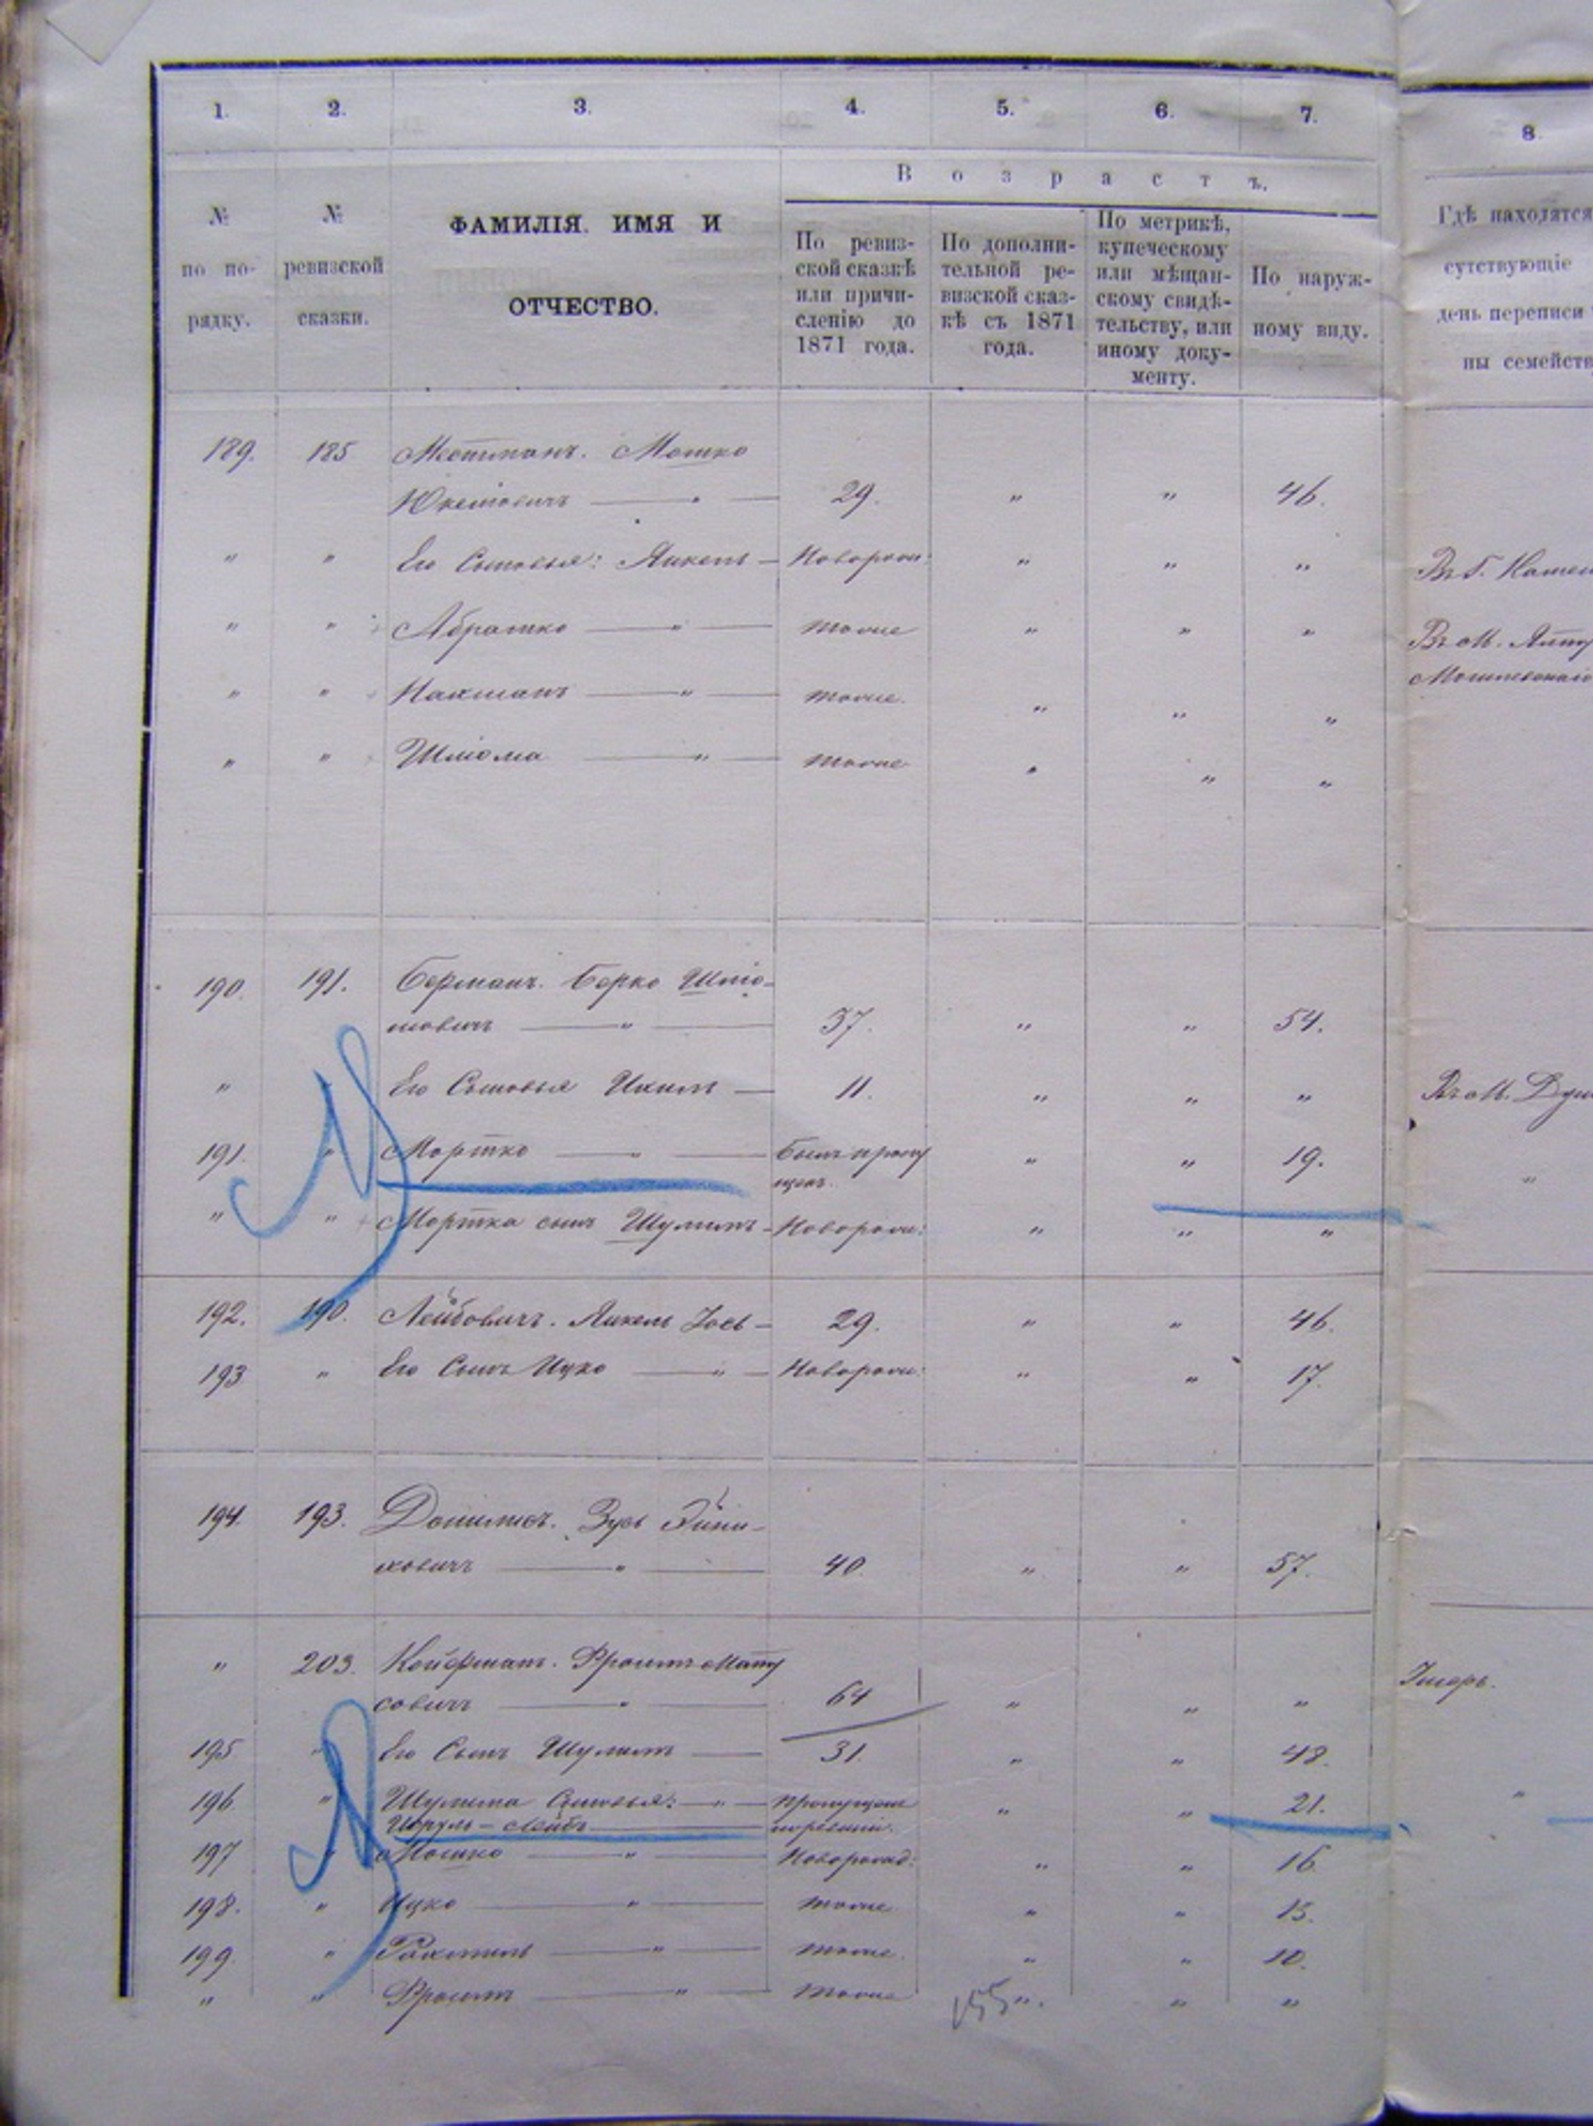 1. 2. 3. 4. 5. 6. 7. 8
В о з р а с т ъ.
№ по по-рядку.
№ ревизской сказки.
ФАМИЛІЯ. ИМЯ И
ОТЧЕСТВО.
По ревиз-
ской сказкѣ
или причи-
сленію до
1871 года.
По дополни-
тельной ре-
визской сказ-
кѣ съ 1871
года.
По метрикѣ,
купеческому
или мѣщан-
скому свидѣ-
тельству, или
иному доку-
менту.
По наруж-
ному виду.
Гдѣ находятся
сутствующіе
день переписи
ны семейств
189. 185 Мошко
29. " " 46.
" " Его Сыновья: Янкель — Новорожд: " " " Въ Г.
" " Абрашко — " — тоже " " " Въ М.
" " Нахманъ — " — тоже. " " "
" " Шліома — " — тоже " " "
190. 191. Берманъ. Берко Шліо-
мовичъ — " — 37. " " 54.
" " Его Сыновья Ихилъ — 11. " " " Въ М.
191. " Мортко — " — былъ пропу " " 19. "
щенъ.
" " Мортка сынъ Шулимъ - Новорожд: " " "
192. 190. Лейбовичъ. Янкель Іось — 29. " " 46.
193 " Его Сынъ Ицко — " — Новорожд: " " 17.
194. 193. Зусь
ховичъ — " — 40. " " 57.
" 203. Койфманъ. Фроимъ Мату
совичъ — " — 64 " " "
195 " Его Сынъ Шулимъ — 31. " " 48.
196 " Шулима Сыновья: — " — пропущенъ " " 21. "
Сруль - Лейбъ
197 " Мошко — " — Новорожд: " " 16.
198. " Ицко — " — тоже " " 13.
199. " Рахмиль — " — тоже. " " 10.
" " Фроимъ — " — тоже " " "
155